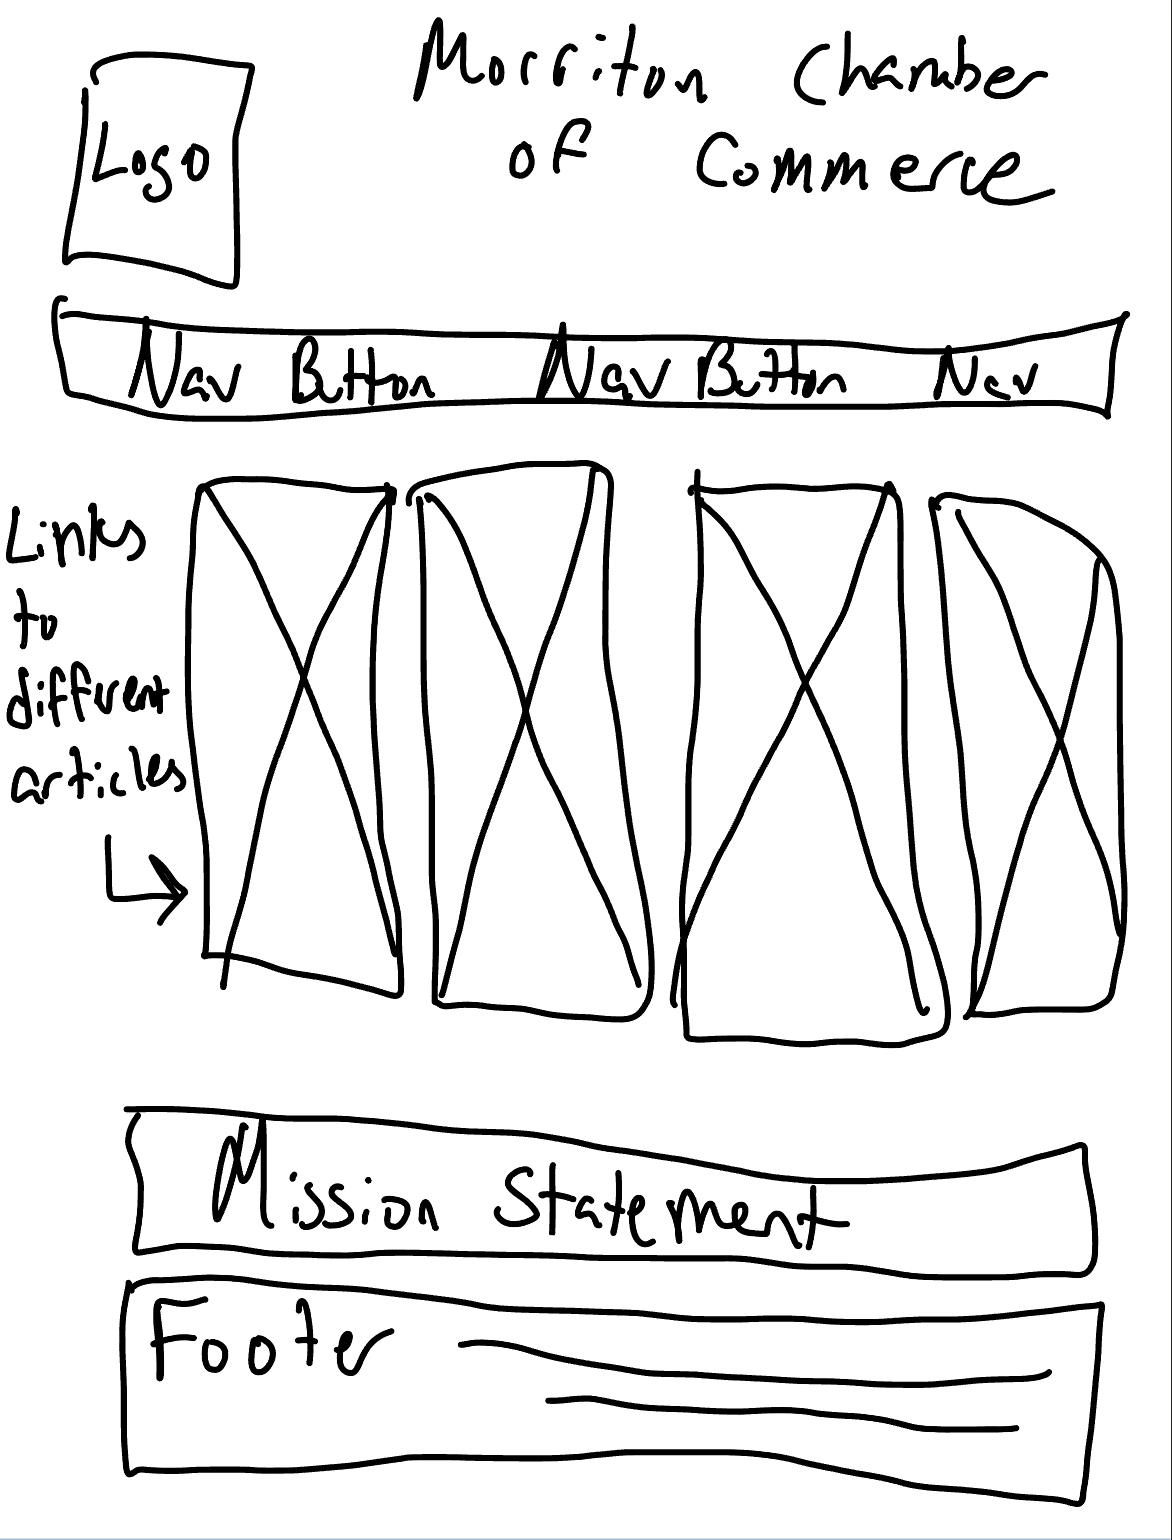 Morriton Chamber
of Commerce
Logo
Nav Button Nav Button Nav
Links
to
different
articles
Mission Statement
Footer